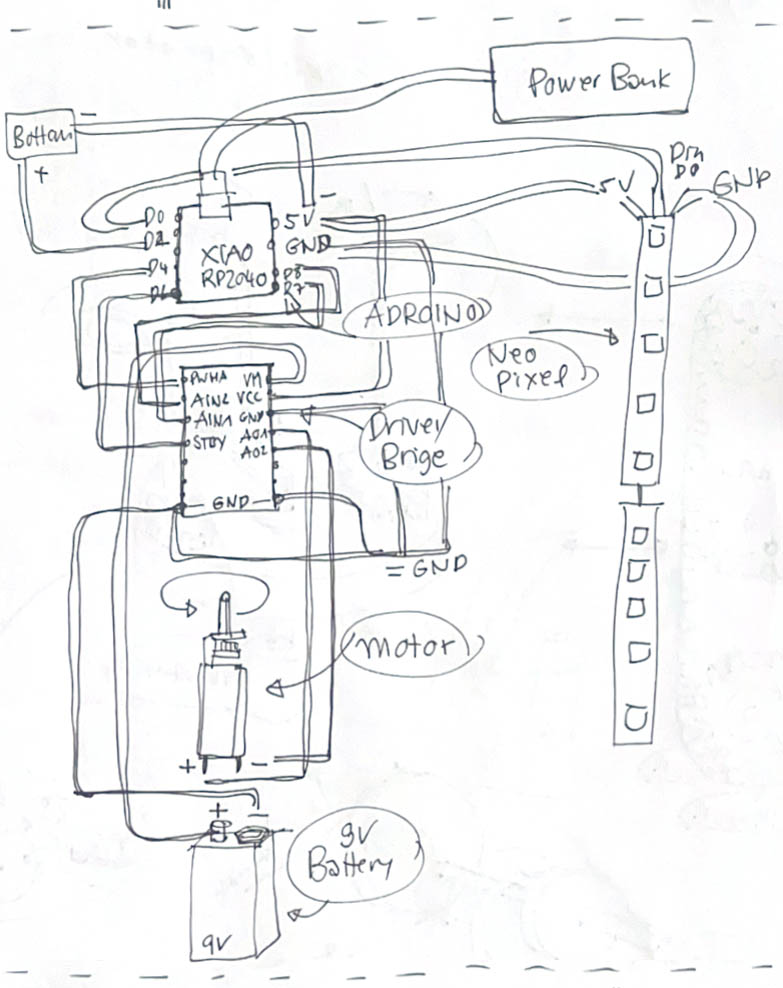 Power Bank
Bottom
-
+
Din
D0
5V
GND
D0
D2
D4
D6
XIAO
RP2040
5V
-
GND
D8
D7
ADROINO
Neo
Pixel
PWMA
AIN2
AIN1
STBY
VM
VCC
GND
A01
A02
GND
Driver
Brige
= GND
motor
+
-
+
-
9V
Battery
9V